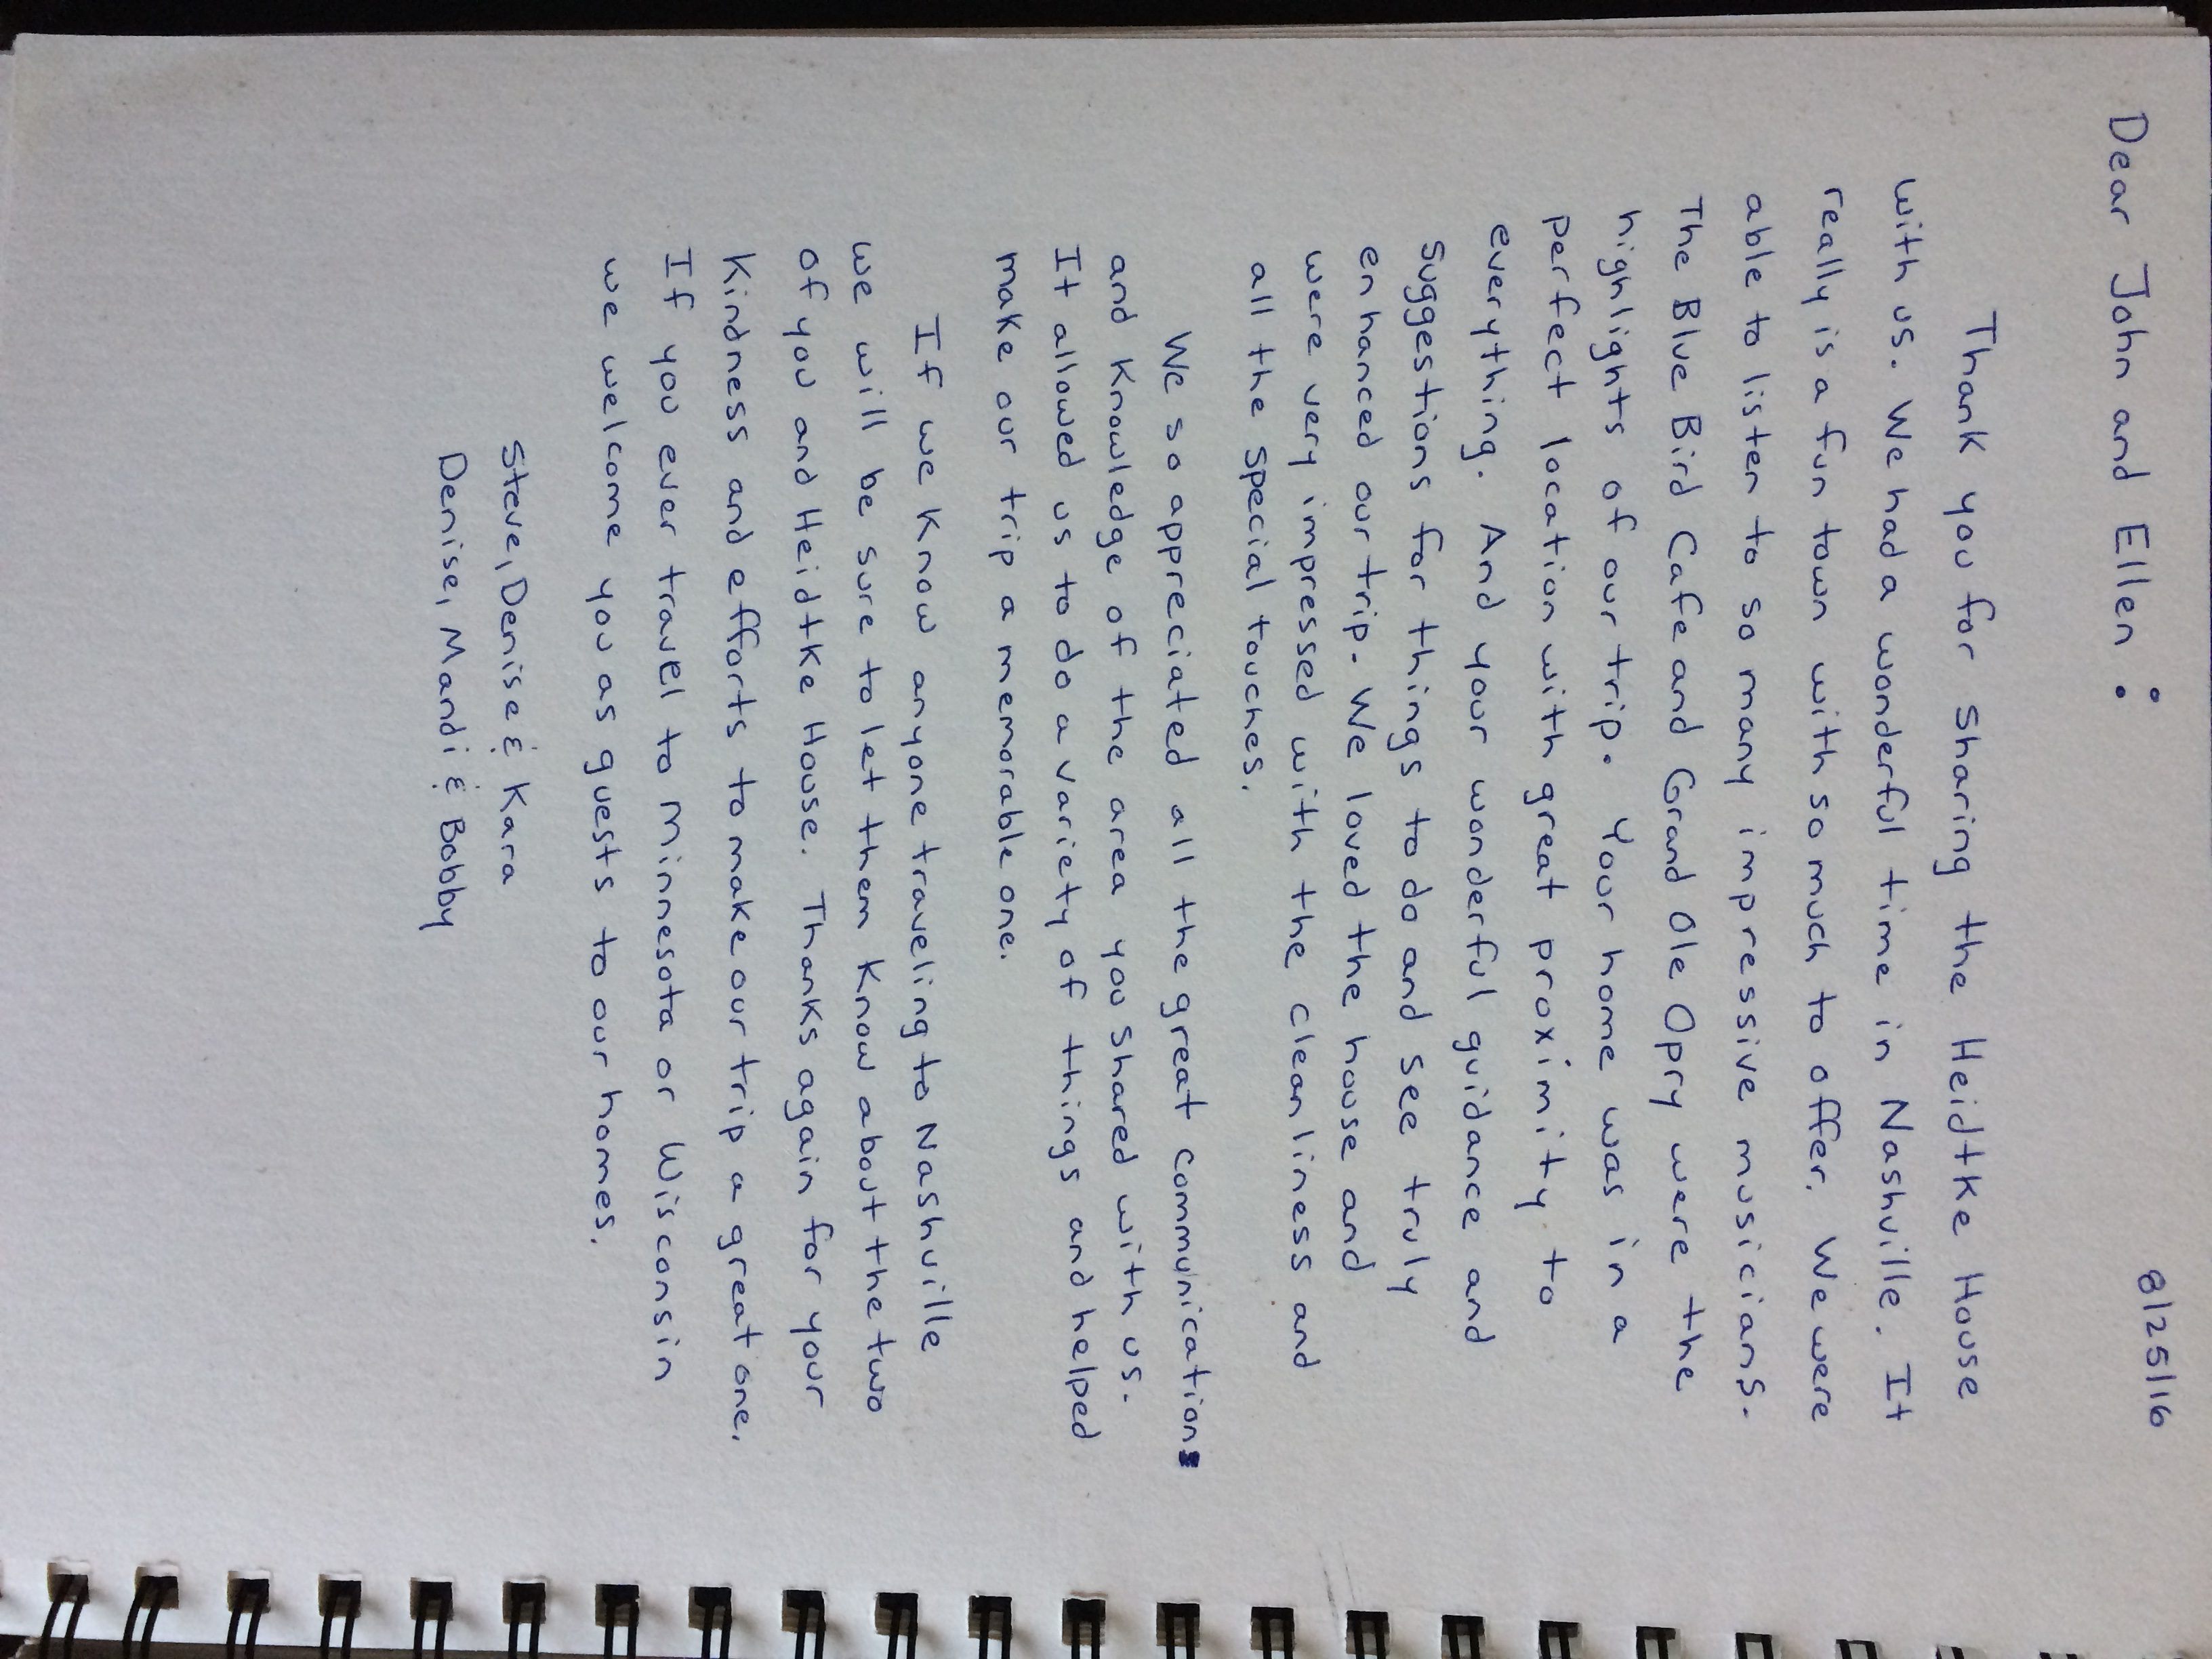 8/25/16
Dear John and Ellen:
Thank you for sharing the Heidtke House
with us. We had a wonderful time in Nashville. It
really is a fun town with so much to offer. We were
able to listen to so many impressive musicians.
The Blue Bird Cafe and Grand Ole Opry were the
highlights of our trip. Your home was in a
perfect location with great proximity to
everything. And your wonderful guidance and
suggestions for things to do and see truly
enhanced our trip. We loved the house and
were very impressed with the cleanliness and
all the special touches.
We so appreciated all the great communications
and knowledge of the area you shared with us.
It allowed us to do a variety of things and helped
make our trip a memorable one.
If we know anyone traveling to Nashville
we will be sure to let them know about the two
of you and Heidtke House. Thanks again for your
kindness and efforts to make our trip a great one.
If you ever travel to Minnesota or Wisconsin
we welcome you as guests to our homes.
Steve, Denise & Kara
Denise, Mandi & Bobby